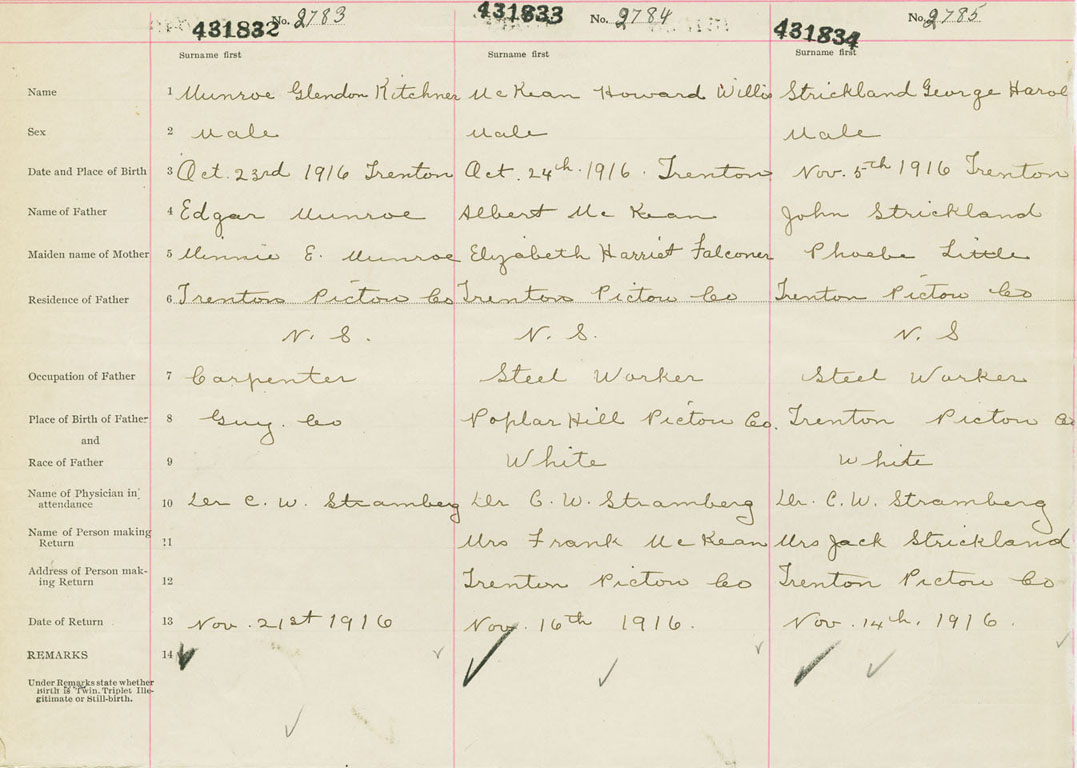 431832 No. 2783 431833 No. 2784 431834 No. 2785
Surname first Surname first Surname first
Name 1 Munroe Glendon Kitchner McKean Howard Willis Strickland George Harol
Sex 2 Male Male Male
Date and Place of Birth 3 Oct. 23rd 1916 Trenton Oct. 24th. 1916. Trenton Nov. 5th 1916 Trenton
Name of Father 4 Edgar Munroe Albert McKean John Strickland
Maiden name of Mother 5 Minnie E. Munroe Elizabeth Harriet Falconer Phoebe Little
Residence of Father 6 Trenton Pictou Co Trenton Pictou Co Trenton Pictou Co
N. S. N. S. N. S
Occupation of Father 7 Carpenter Steel Worker Steel Worker
Place of Birth of Father 8 Guy. Co Poplar Hill Pictou Co. Trenton Pictou Co
and
Race of Father 9 White White
Name of Physician in attendance 10 Dr C. W. Stramberg Dr C. W. Stramberg Dr. C. W. Stramberg
Name of Person making Return 11 Mrs Frank McKean Mrs Jack Strickland
Address of Person mak-
ing Return 12 Trenton Pictou Co Trenton Pictou Co
Date of Return 13 Nov. 21st 1916 Nov. 16th 1916. Nov. 14th. 1916.
REMARKS 14
Under Remarks state whether
Birth is Twin, Triplet Ille-
gitimate or Still-birth.